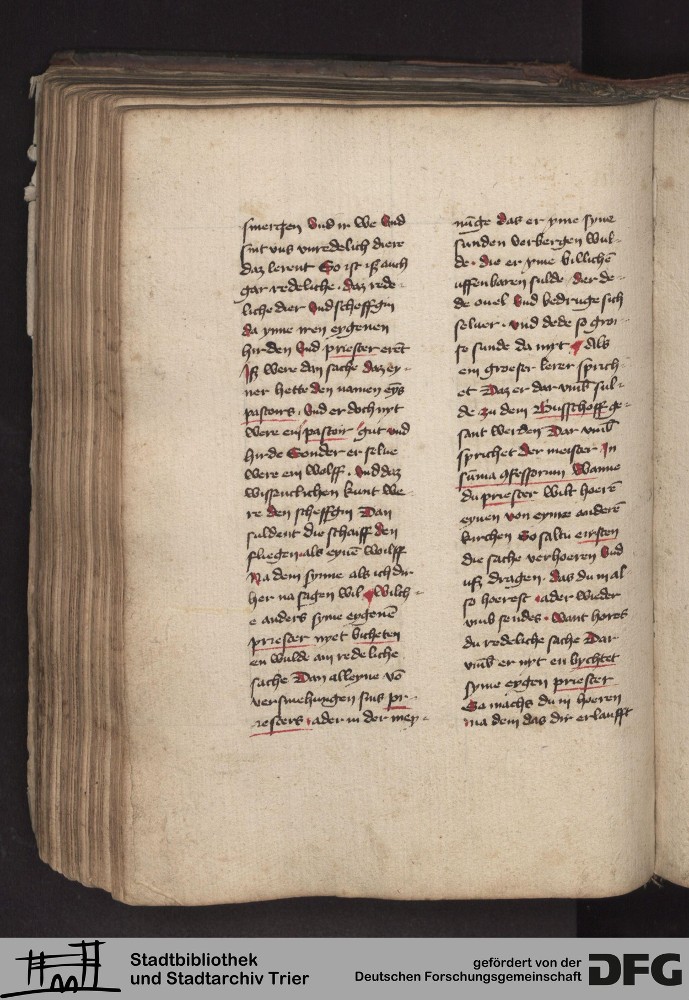 smertzen Vnd in we Vnd
sint vns vnredelich diere
daz lerent So ist iß auch
gar redeliche . daz rede-
liche dier Vnd scheffgin
da ynne iren eygenen
hirden Vnd priester erēt
Iß were dan sache daz ey-
ner hette den namen eyns
pastoirs . Vnd er doch nyt
were ein pastoir gut vnd
hirde Sonder er selue
were ein wolff . Vnd daz
wissenclichen kunt we-
re den scheffgin Dan
suldent die schaiff den
fliegen als eynē wolff
Na dem synne als ich dir
her na sagen wil ¶ Wilch-
e anders syme eygenē
priester nyet bichten
en wulde ain redeliche
sache Dan alleyne vō
versmehungen sins pr-
iesters . ader in der mey-
nūge das er yme syne
sunden verbergen wul-
de . die er yme billichē
uffenbaren sulde / der de-
de ouel Vnd bedruge sich
seluer . vnd dede so groi-
se sunde da myt ¶ Als
ein groeser lerer sprich-
et Daz er dar vmb sul-
de zu dem Busschoff ge-
sant werden Dar vmb
sprichet der meister In
sūma ꝯfessorum Wanne
du priester wilt hoerē
eynen von eyme anderē
kirchen So saltu eirsten
die sache verhoeren Vnd
uß dragen . das du in al-
so hoerest . ader wieder
vmb sendes . Want hores
du redeliche sache Dar
vmb er nyt en bychtet
syme eygen priester
Sa machs du in hoeren
na dem das dir erlaufft
Stadtbibliothek
und Stadtarchiv Trier
gefördert von der
Deutschen Forschungsgemeinschaft
DFG